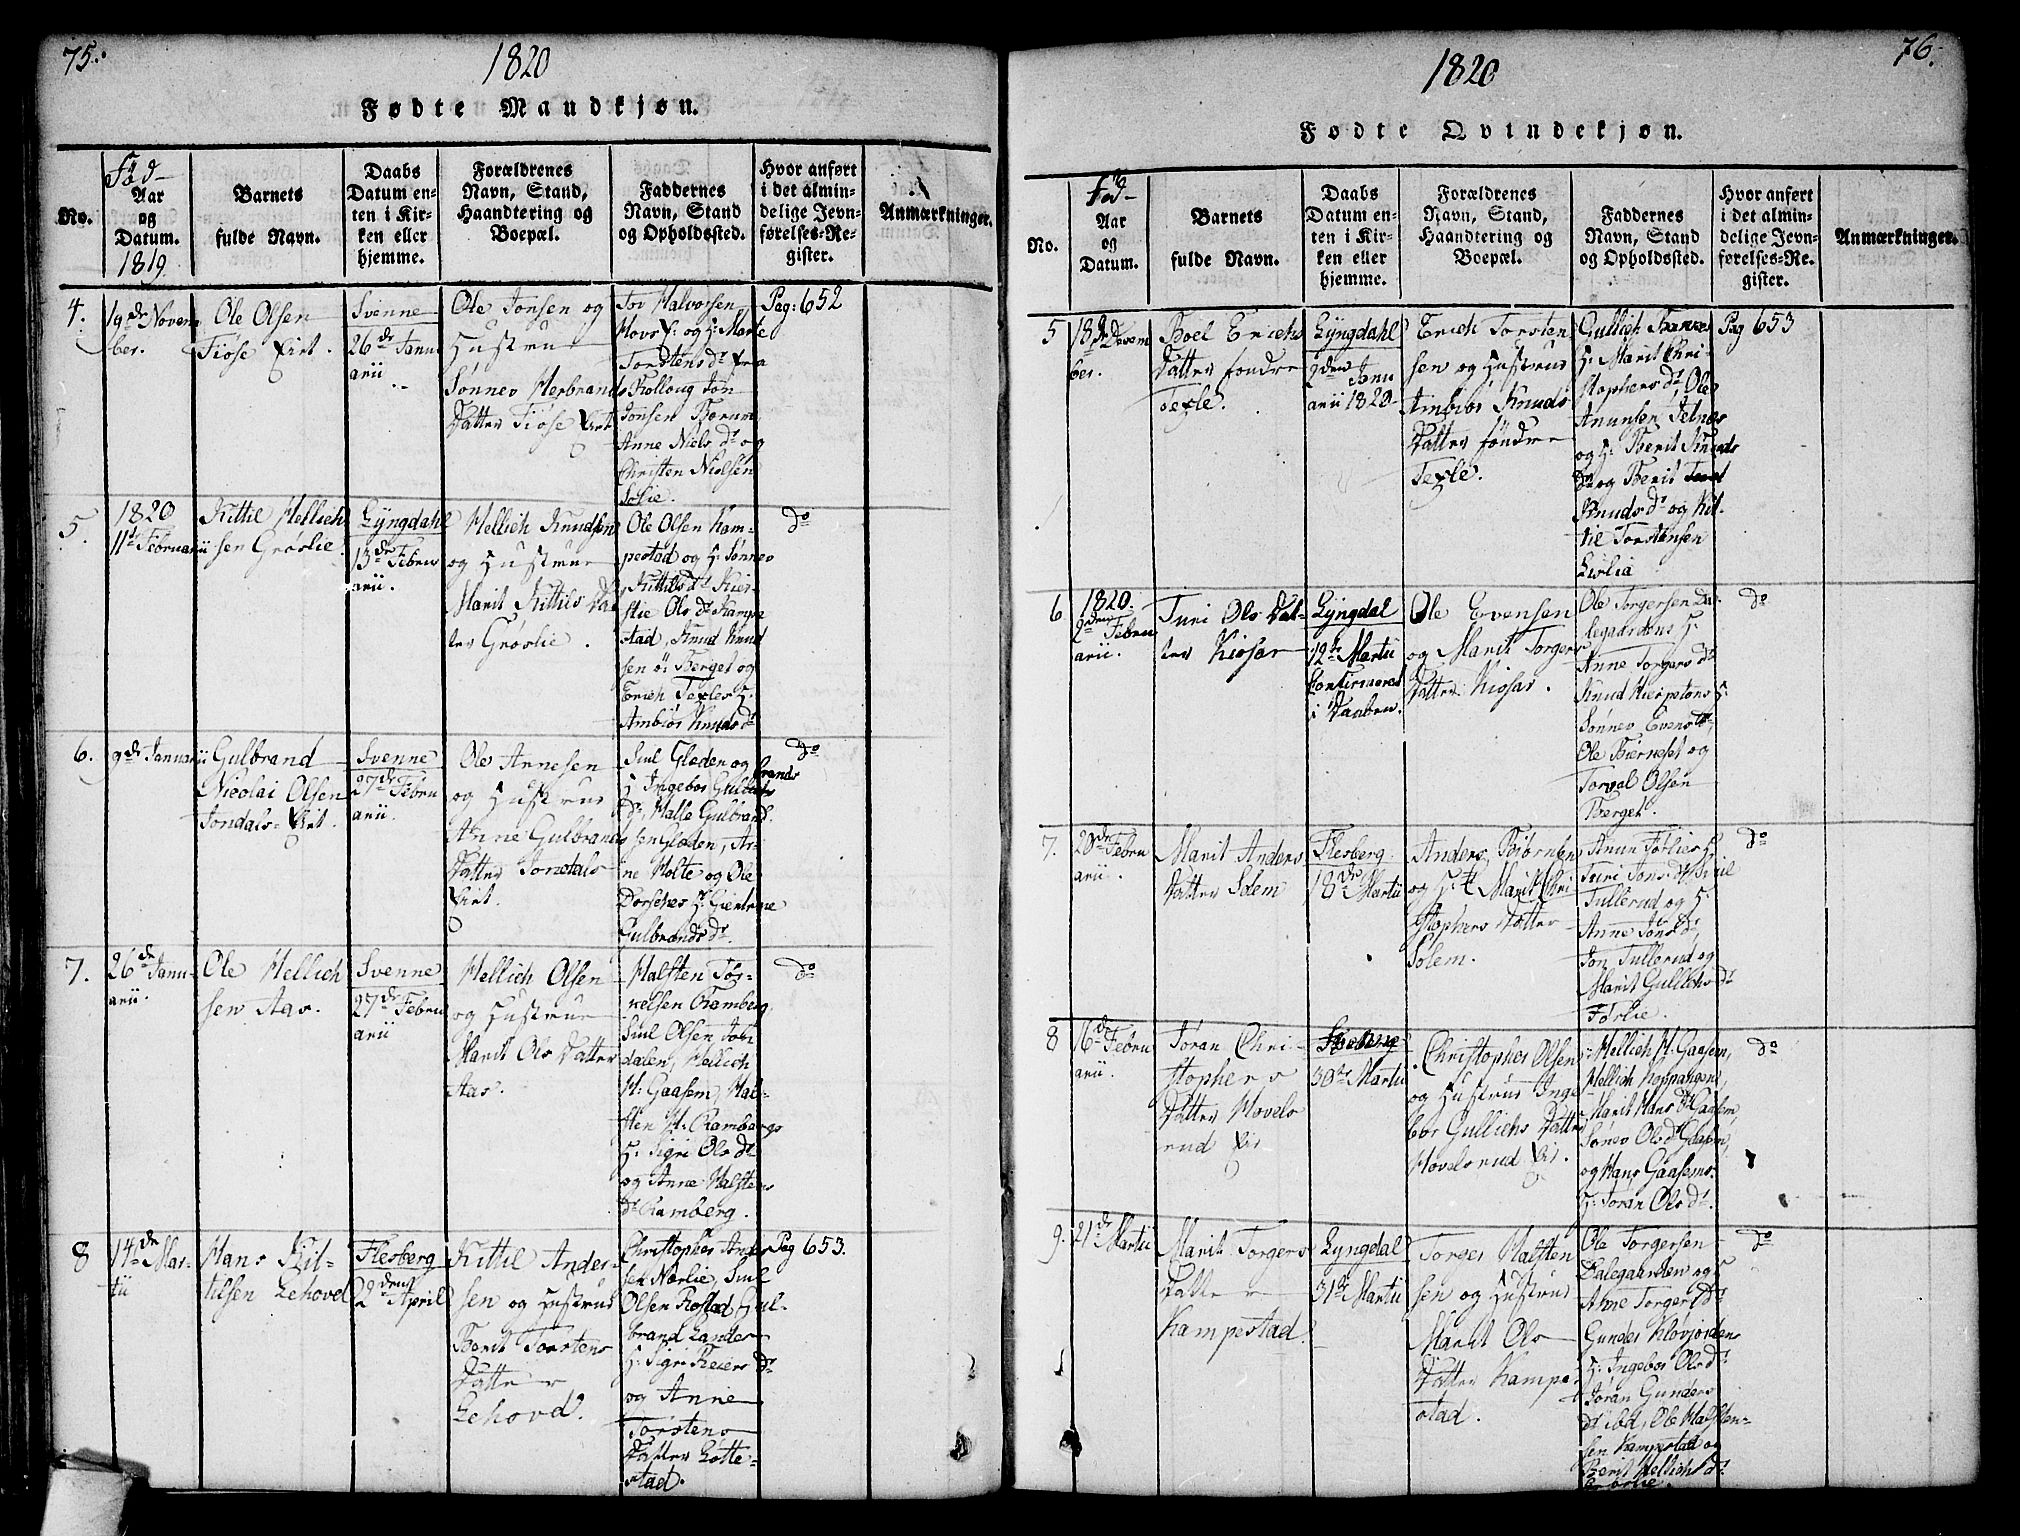 75.
1820
Fødte Mandkjøn.
No.
Fød-
Aar
og
Datum.
1819.
Barnets
fulde Navn.
Daabs
Datum en-
ten i Kir-
ken eller
hjemme.
Forældrenes
Navn, Stand,
Haandtering og
Boepæl.
Faddernes
Navn, Stand
og Opholdssted.
Hvor anført
i det almin-
delige Jevn-
førelses-Re-
gister.
Anmærkninger.
4.
19de Novem
ber.
Ole Olsen
Fiose Eiet.
Svenne
26de Janu
arii
Ole Jonsen og
Hustrue
Sønnev Herbrands
Datter Fiose Eiet
Tov Halvorsen
Hovs H: og H: Marte
Torstens dr fra
Kolloug Jon
Jonsen Borum
Anne Niels dr og
Christen Nielsen
Solie.
Pag: 652
5.
1820
11te Februarii
Kittil Hellich
sen Grøslie.
Lÿngdahl
13de Febru
arii
Hellich Knudsen
og Hustrue
Marit Kittils Dat
ter Grøslie.
Ole Olsen Kam-
pestad og H: Sønnev
Kittils dr Kier-
stie Ols dr Kampe
stad, Knud Knud
sen ö: Berget og
Erich Texles H:
Ambiør Knuds dr
do
6.
9de Januarii
Gulbrand
Nicolai Olsen
Jondals Eiet.
Svenne
27de Febru
arii.
Ole Arnesen
og Hustrue
Anne Gulbrands
Datter Jondals
Eiet.
Juul Gløden og
H: Ingebor Gulbrands
dr, Halle Gulbrand
sen Gløden, Ar-
ne Holte og Ole
Dorsches H: Giertrue
Gulbrands dr.
do
7.
26de Janu-
arii.
Ole Hellich
sen Aas.
Svenne
27de Febru
arii
Hellich Olsen
og Hustrue
Marit Ols Datter
Aas.
Halsten Tor-
kelsen Ramberg
Juul Olsen Jon
dalen, Hellich
H: Gaasem, Hal-
sten H: Rambergs
H: Sigri Ols dr
og Anne Halstens
dr Ramberg.
do
8
14de Mar-
tii
Hans Kit-
tilsen Lehovd
Flesberg
2den April
Kittil Anders-
sen og Hustrue
Berit Torstens
Datter
Lehovd.
Christopher Anders
sen Nørlie, Juul
Olsen Rostad, Gul-
brand Lander
H: Sigri Reiers dr
og Anne
Torstens
Datter Lofte-
stad.
Pag 653.
76.
1820
Fødte Qvindekjøn.
No.
Fød-
Aar
og
Datum.
Barnets
fulde Navn.
Daabs
Datum en-
ten i Kir-
ken eller
hjemme.
Forældrenes
Navn, Stand,
Haandtering og
Boepæl.
Faddernes
Navn, Stand
og Opholdssted.
Hvor anført
i det almin-
delige Jevn-
førelses-Re-
gister.
Anmærkninger.
5
18de Decem
ber.
Boel Erichs
Datter søndre
Texle.
Lÿngdahl
9den Janu
arii 1820
Erich Torsten
sen og Hustrue
Ambiør Knuds
Datter søndre
Texle.
Gullich
H: Marit Chri-
stophers dr, Ole
Amunsen Jelnes
og H: Berit Knuds
dr og Berit
Knuds dr og Kit-
til Torstensen
Lislia
Pag 653
6
1820.
2den Febru
arii.
Turi Ols Dat-
ter Kiosar
Lÿngdal
12te Martii
Confirmeret
i Daaben.
Ole Evensen
og Marit Torgers
Datter Kiosar.
Ole Torgersen Da-
legaardens H:
Anne Torgers dr
Knud Kierpetøns H:
Sønnev Evens dr,
Ole Biernesset og
Torval Olsen
Berget.
do
7.
20de Febru
arii.
Marit Anders
Datter Solem
Flesberg
18de Martii
Anders Biørnsen
og H: Marit Chri
stophers Datter
Solem.
Anun Førlies H:
Turi Jons dr Juul
Tullerud og H:
Anne Jons dr,
Jon Tullerud og
Marit Gullichs dr
Førlie.
do
8
16de Febru
arii.
Jøran Chri-
stophers
Datter Hovels
rud Eie
Flesberg
30te Martii
Christopher Olsen
og Hustrue Inge
bor Gullichs Datter
Hovelsrud Ei.
Hellich H: Gaasem,
Hellich Koppangen,
Marit Hans dr Gaasem,
Sønev Ols dr Gaasem,
og Hans Gaasems
H: Jøran Ols dr.
do
9.
21de Martii
Marit Torgers
Datter
Kampestad.
Lÿngdal
31te Martii
Torger Halsten
sen og Hustrue
Marit Ols
Datter Kampe
stad.
Ole Torgersen
Dalegaarden og H
Anne Torgers dr
Gunder Kløvjorden
H: Ingebor Ols dr
Jøran Gunders
dr ibd, Ole Halsten-
sen Kampestad og
Berit Hellichs dr
do